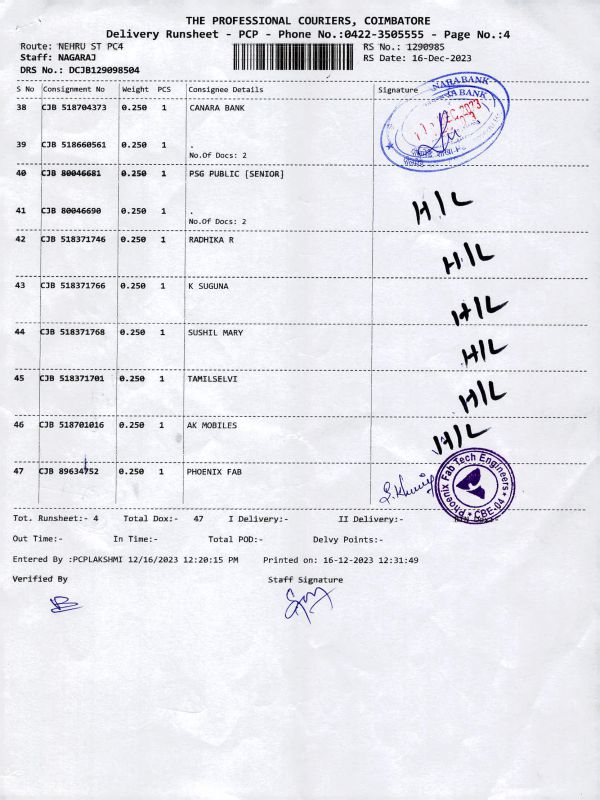 THE PROFESSIONAL COURIERS, COIMBATORE
Delivery Runsheet - PCP - Phone No.:0422-3505555 - Page No.:4
Route: NEHRU ST PC4 RS No.: 1290985
Staff: NAGARAJ RS Date: 16-Dec-2023
DRS No.: DCJB129098504
S No Consignment No Weight PCS Consignee Details Signature
38 CJB 518704373 0.250 1 CANARA BANK
39 CJB 518660561 0.250 1 .
No.Of Docs: 2
40 CJB 80046681 0.250 1 PSG PUBLIC [SENIOR]
41 CJB 80046690 0.250 1 . H/L
No.Of Docs: 2
42 CJB 518371746 0.250 1 RADHIKA R H/L
43 CJB 518371766 0.250 1 K SUGUNA H/L
44 CJB 518371768 0.250 1 SUSHIL MARY H/L
45 CJB 518371701 0.250 1 TAMILSELVI H/L
46 CJB 518701016 0.250 1 AK MOBILES H/L
47 CJB 89634752 0.250 1 PHOENIX FAB
Phoenix Fab Tech Engineers
CBE-04
Tot. Runsheet:- 4 Total Dox:- 47 I Delivery:- II Delivery:-
Out Time:- In Time:- Total POD:- Delvy Points:-
Entered By :PCPLAKSHMI 12/16/2023 12:20:15 PM Printed on: 16-12-2023 12:31:49
Verified By Staff Signature